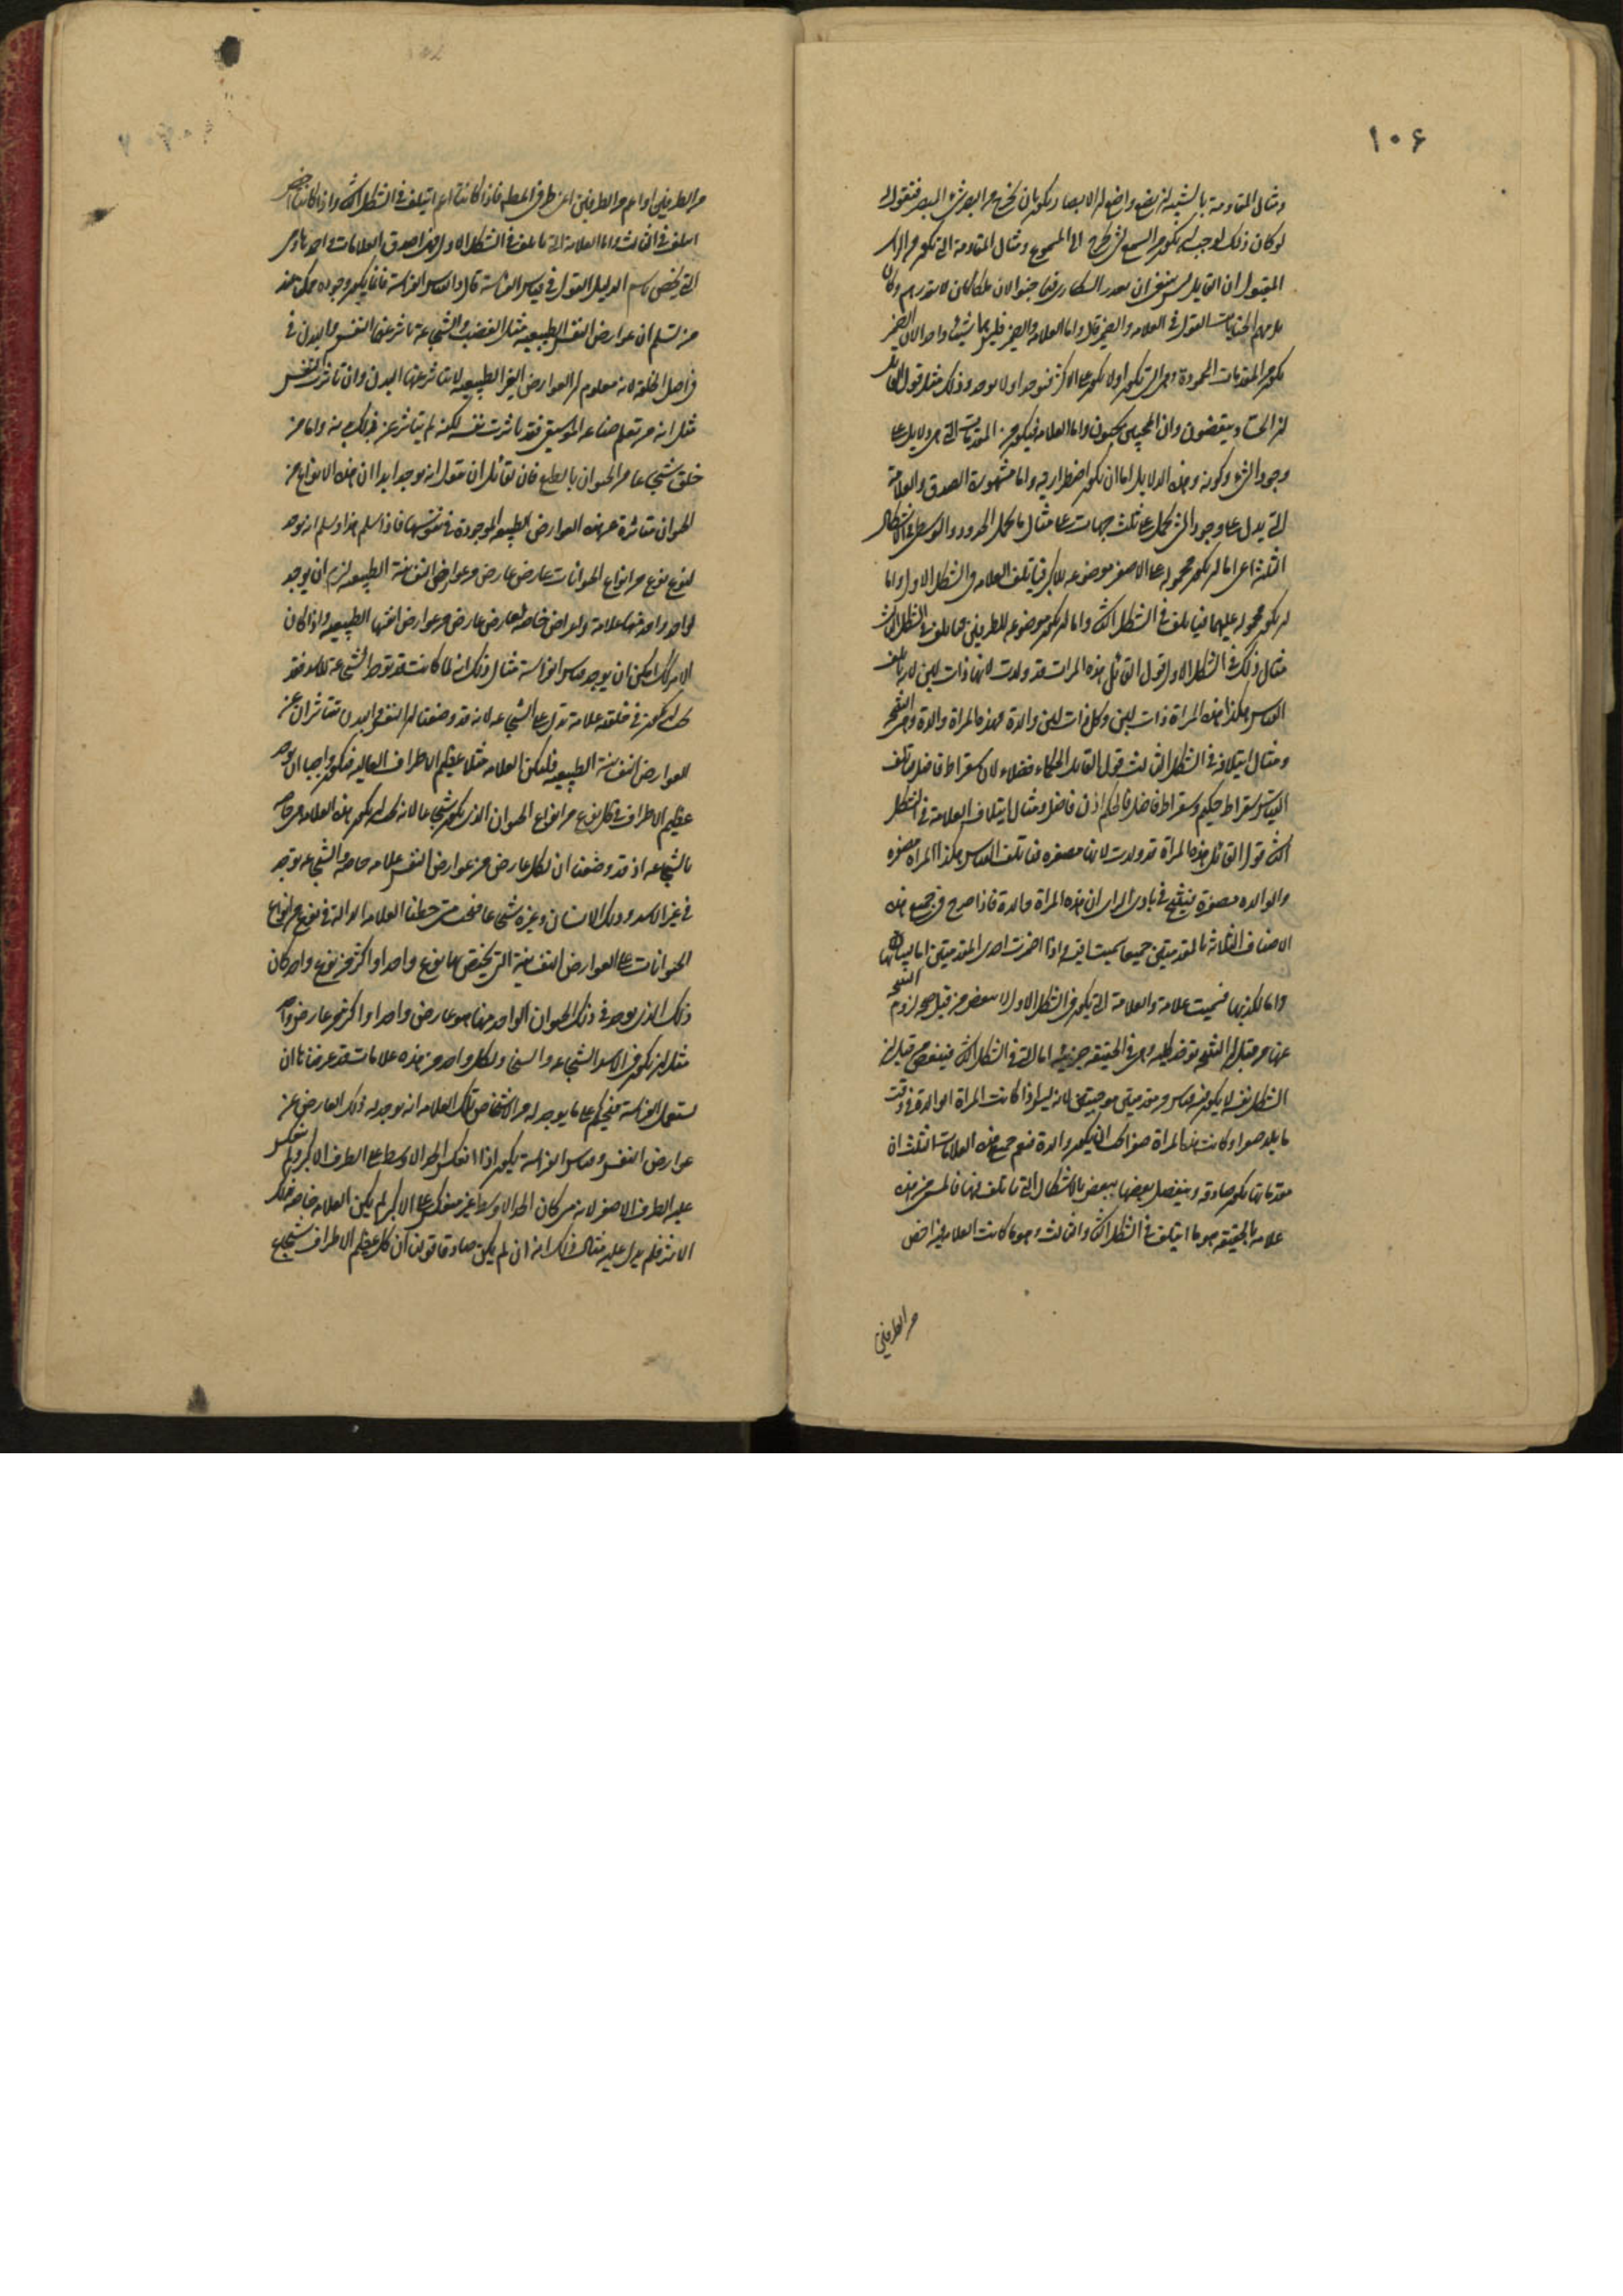 ١٠۶
ومثال المقاومة بالشبيه ان يضع واضع ان الابصار يكون بان يخرج من البصر شيء الى المبصر فنقول انه
لو كان ذلك لوجب ان يكون السمع شيء يخرج الى المسموع ومثال المقاومة التي تكون من الراى
المقبول ان القايل ليس ينبغى ان يعذر السكارى فيما جنوا لان
يلزمهم الجنايات القول في العلامة والضمير قال واما العلامة والضمير فليس هما شيئا واحدا لان الضمير
يكون من المقدمات المحمودة وهى التي تكون او لا تكون على الاكثر او توجد او لا توجد وذلك مثل قول القايل
ان الحساد يبغضون وان المحبين يحبون واما العلامة فيكون من المقدمات التي هي دلايل على
وجود الشيء وكونه وهذه الدلايل اما ان تكون اضطرارية واما مشهورة الصدق والعلامة
التي يدل على وجود الشيء تحمل على ثلث جهات على مثال ما يحمل الحدود الوسطى في الاشكال
الثلثة اعنى اما ان يكون محموله على الاصغر موضوعه للاكبر فيأتلف العلامة في الشكل الاول واما
ان يكون محموله عليهما فيأتلف في الشكل الثانى واما ان يكون موضوعه للطرفين فيأتلف في الشكل الثالث
مثال ذلك في الشكل الاول قول القائل هذه المراة قد ولدت لانها ذات لبن لانه يأتلف
القياس هكذا هذه المراة ذات لبن وكل ذات لبن والدة فهذه المراة والدة وهي النتيجة
ومثال ايتلافه في الشكل الثالث قول القايل الحكماء فضلاء لان سقراط فاضل ويأتلف
القياس سقراط حكيم وسقراط فاضل فالحكيم اذن فاضل ومثال ايتلاف العلامة في الشكل
الثانى قول القائل هذه المراة قد ولدت لانها مصفرة فيأتلف القياس هكذا المراة مصفرة
والوالدة مصفرة فينتج في بادى الراى ان هذه المراة والدة فاذا صرح في جميع هذه
الاصناف الثلاثة بالمقدمتين جميعا سميت اقيسة واذا اضمرت احدى المقدمتين اما لبيانها
واما لكذبها سميت علامة والعلامة التي تكون في الشكل الاول لا تنقض من قبل صحة لزوم النتيجة
عنها من قبل ان النتيجة توخذ كلية وهي في الحقيقة جزئية اما التي في الشكل الثانى فينقض من قبل ان
الشكل نفسه لا يكون فيه قياس من مقدمتين موجبتين لانه ليس اذا كانت المراة الوالدة في وقت
ما يلد صفراء وكانت هذه المراة صفراء يجب ان يكون والدة فنعم جميع هذه العلامات الثلث ان
مقدماتها تكون صادقة وينفصل بعضها ببعض بالاشكال التي تأتلف فيها فالمس من هذه
علامة بالحقيقة هو ما ايتلف في الشكل الثانى والثالث وهو ما كانت العلامة فيه اخص
من الطرفين
من الطرفين او اعم من الطرفين اعنى طرفى المطلوب فاذا كانت اعم ايتلف في الشكل الثانى واذا كانت اخص
ايتلف في الثالث واما العلامة التي تأتلف في الشكل الاول فهى اصدق العلامات واحمدها وهى
التي تخص باسم الدليل القول في قياس الفراسة قال وقياس الفراسة فانما يكون وجوده ممكن عند
من تسلم ان عوارض النفس الطبيعية مثل الغضب والشجاعة تاثر عنها النفس والبدن في
اصل الخلقة لانه معلوم ان العوارض الغير الطبيعية لا يتاثر عنها البدن وان تاثرت النفس
مثل انه من تعلم صناعة الموسيقى فقد تاثرت نفسه لكنه لم يتاثر عن ذلك بدنه واما من
خلق شجاعا من الحيوان بالطبع فان لقائل ان يقول انه يوجد ابدا ان هذه الانواع من
الحيوان متاثرة عن هذه العوارض الطبيعية الموجودة في نفوسها فاذا سلم هذا وسلم انه يوجد
لنوع نوع من انواع الحيوانات عارض عارض من عوارض النفسانية الطبيعية لزم ان يوجد
لواحد واحد منها علامة واعراض خاصة بعارض عارض من عوارض انفسها الطبيعية واذا كان
الامر كذلك امكن ان يوجد قياس الفراسة مثال ذلك انه لما كانت قد توجد الشجاعة للاسد فقد
يجب ان يكون في خلقته علامة تدل على الشجاعة لانه قد وضعنا ان النفس والبدن يتاثران عن
العوارض النفسانية الطبيعية فليكن العلامة مثلا عظيم الاطراف العالية فيكون واجبا ان يوجد
عظيم الاطراف في كل نوع من انواع الحيوان الذي يكون شجاعا لانه يجب ان يكون هذه العلامة خاصة
بالشجاعة اذ قد وضعنا ان لكل عارض من عوارض النفس علامة خاصة والشجاعة توجد
في غير الاسد وذلك الانسان وغيره شجاعا فنحن متى حفظنا العلامة الدالة في نوع من انواع
الحيوانات على العوارض النفسانية التي يختص بها نوع واحد او اكثر من نوع واحد كان
ذلك الذي يوجد في ذلك الحيوان الواحد منها هو عارض واحد او اكثر من عارض واحد
مثل ان يكون في الاسد الشجاعة والسخاء ولكل واحد من هذه علامات قد عرفناها ان
نستعمل الفراسة فنحكم على ما يوجد له من الاشخاص تلك العلامة انه يوجد له ذلك العارض من
عوارض النفس وقياس الفراسة يكون اذا انعكس الحد الاوسط على الطرف الاكبر ولم ينعكس
عليه الطرف الاصغر لانه متى كان الحد الاوسط غير منعكس على الاكبر لم يكن العلامة خاصة بذلك
الاثر فلم يدل عليه مثال ذلك انه ان لم يكن صادقا قولنا ان كل عظيم الاطراف شجاع